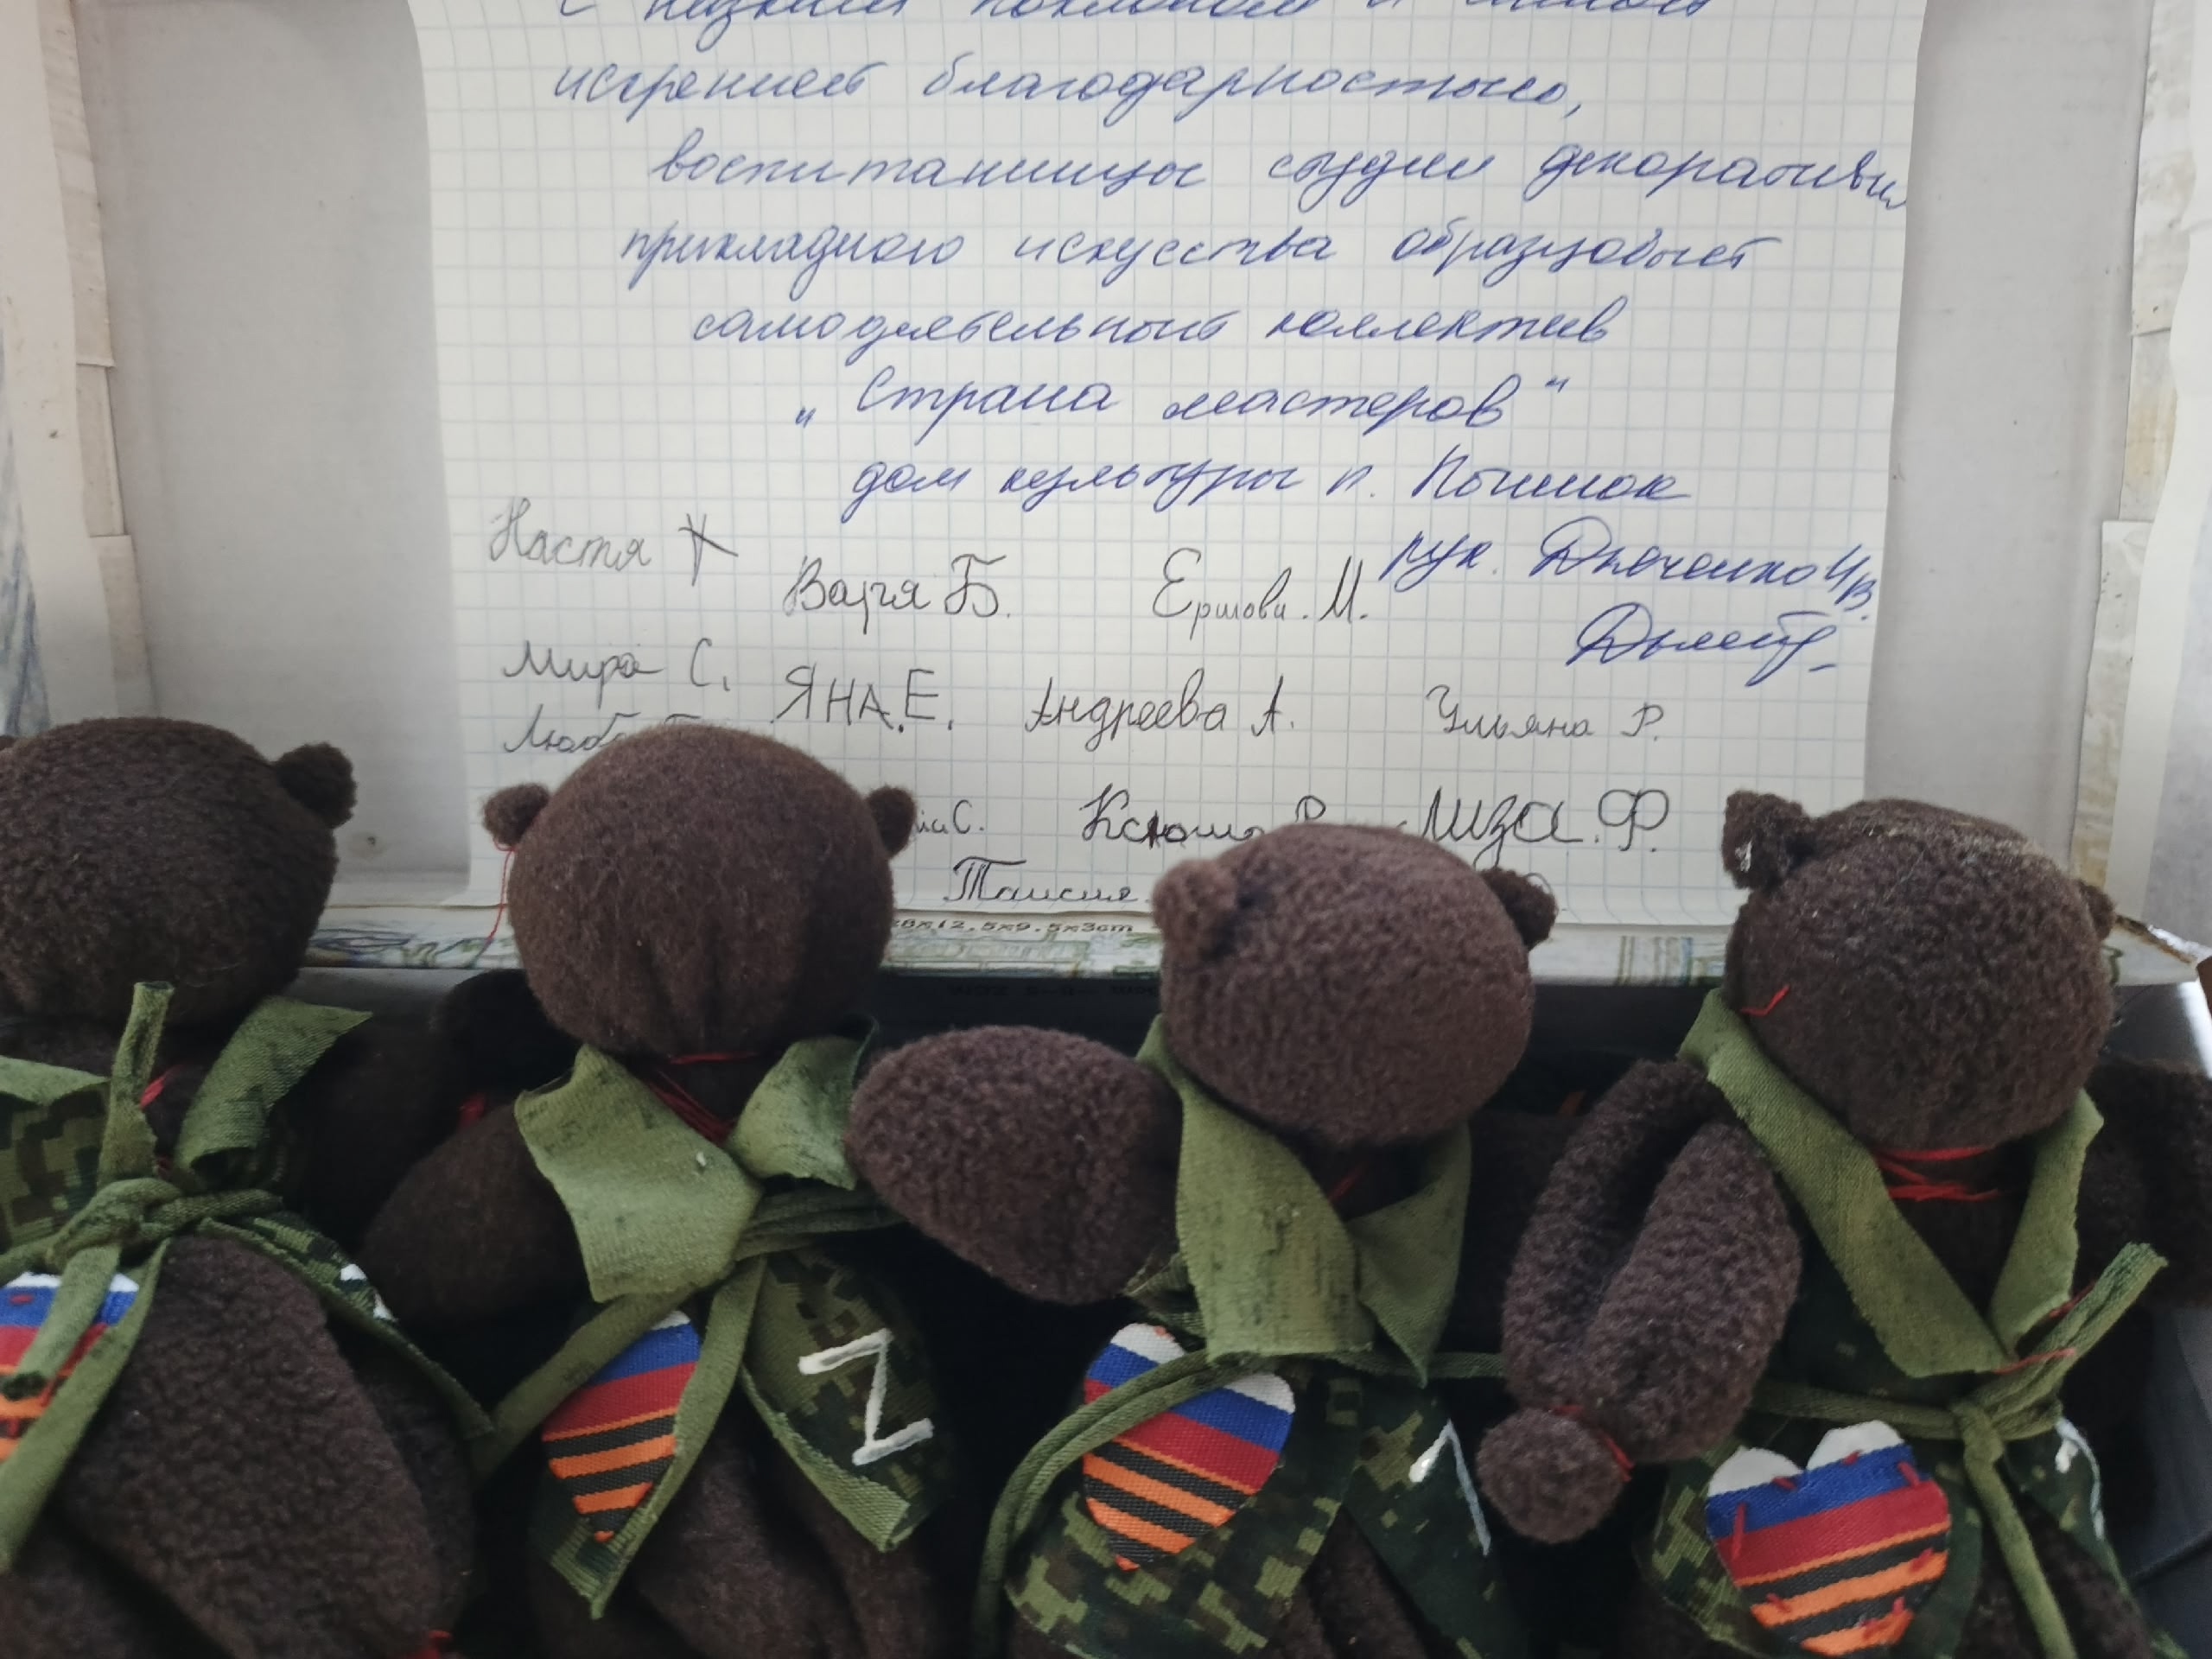 С низким поклоном и
искренней благодарностью,
воспитанницы студии декоративн
прикладного искусства образцовый
самодеятельный коллектив
„Страна мастеров"
дом культуры п. Починок
рук.
Настя
Варя Б.
Ершова. М.
Мира С.
ЯНА.Е.
Андреева А.
Ульяна Р.
Люб
С.
Ксюша Р
Лиза.Ф.
Таисия
8x12.5x9.5x3cm
Z